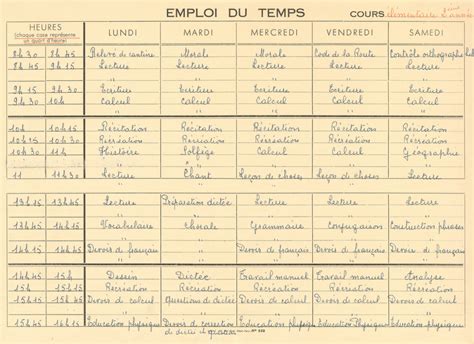 EMPLOI DU TEMPS COURS élémentaire 2ème année
HEURES LUNDI MARDI MERCREDI VENDREDI SAMEDI
(chaque case représente
un quart d'heure)
8h30 8h45 Relevé de cantine Morale Morale Code de la Route Contrôle orthographe
8h45 9h15 Lecture Lecture Lecture Lecture Lecture
" " " " "
9h15 9h30 Ecriture Ecriture Ecriture Ecriture Ecriture
9h30 10h Calcul Calcul Calcul Calcul Calcul
" " " " "
10h 10h15 Récitation Récitation Récitation Récitation Récitation
10h15 10h30 Récréation Récréation Récréation Récréation Récréation
10h30 11h Histoire Solfège Calcul Calcul Géographie
" " " " "
11 11h30 Lecture Chant Leçon de choses Leçon de choses Lecture
" " " " "
13h15 13h45 Lecture Préparation dictée Lecture Lecture Lecture
" " " " "
13h45 14h15 Vocabulaire Chorale Grammaire Conjugaison Construction phrases
" " " " "
14h15 14h45 Devoirs de français " Devoirs de français Devoirs de français Devoirs de français
14h45 15h Dessin Dictée Travail manuel Travail manuel Analyse
15h 15h15 Récréation Récréation Récréation Récréation Récréation
15h15 15h45 Devoirs de calcul Questions de dictée Devoirs de calcul Devoirs de calcul Devoirs de calcul
" " " " "
15h45 Education physique Devoirs de correction Education physique Education Physique Education physique
de dictée et questions